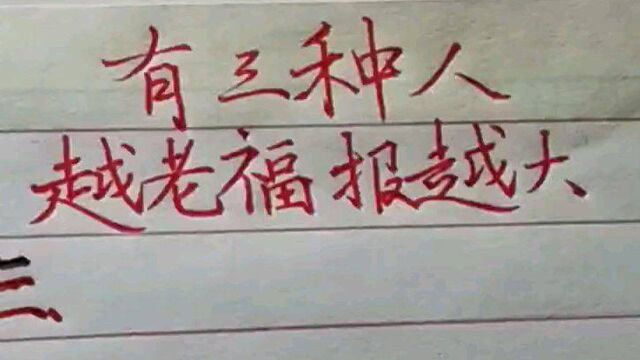 有三种人
越老福报越大
三、